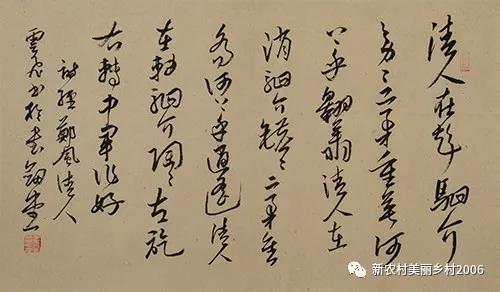 清人在彭駟介
旁〻二矛重英河
上乎翱翔清人在
消駟介鑣〻二矛重
喬河上乎逍遥清人
在軸駟介陶〻左旋
右抽中軍作好
詩經鄭風清人
雲書於堂
新农村美丽乡村2006